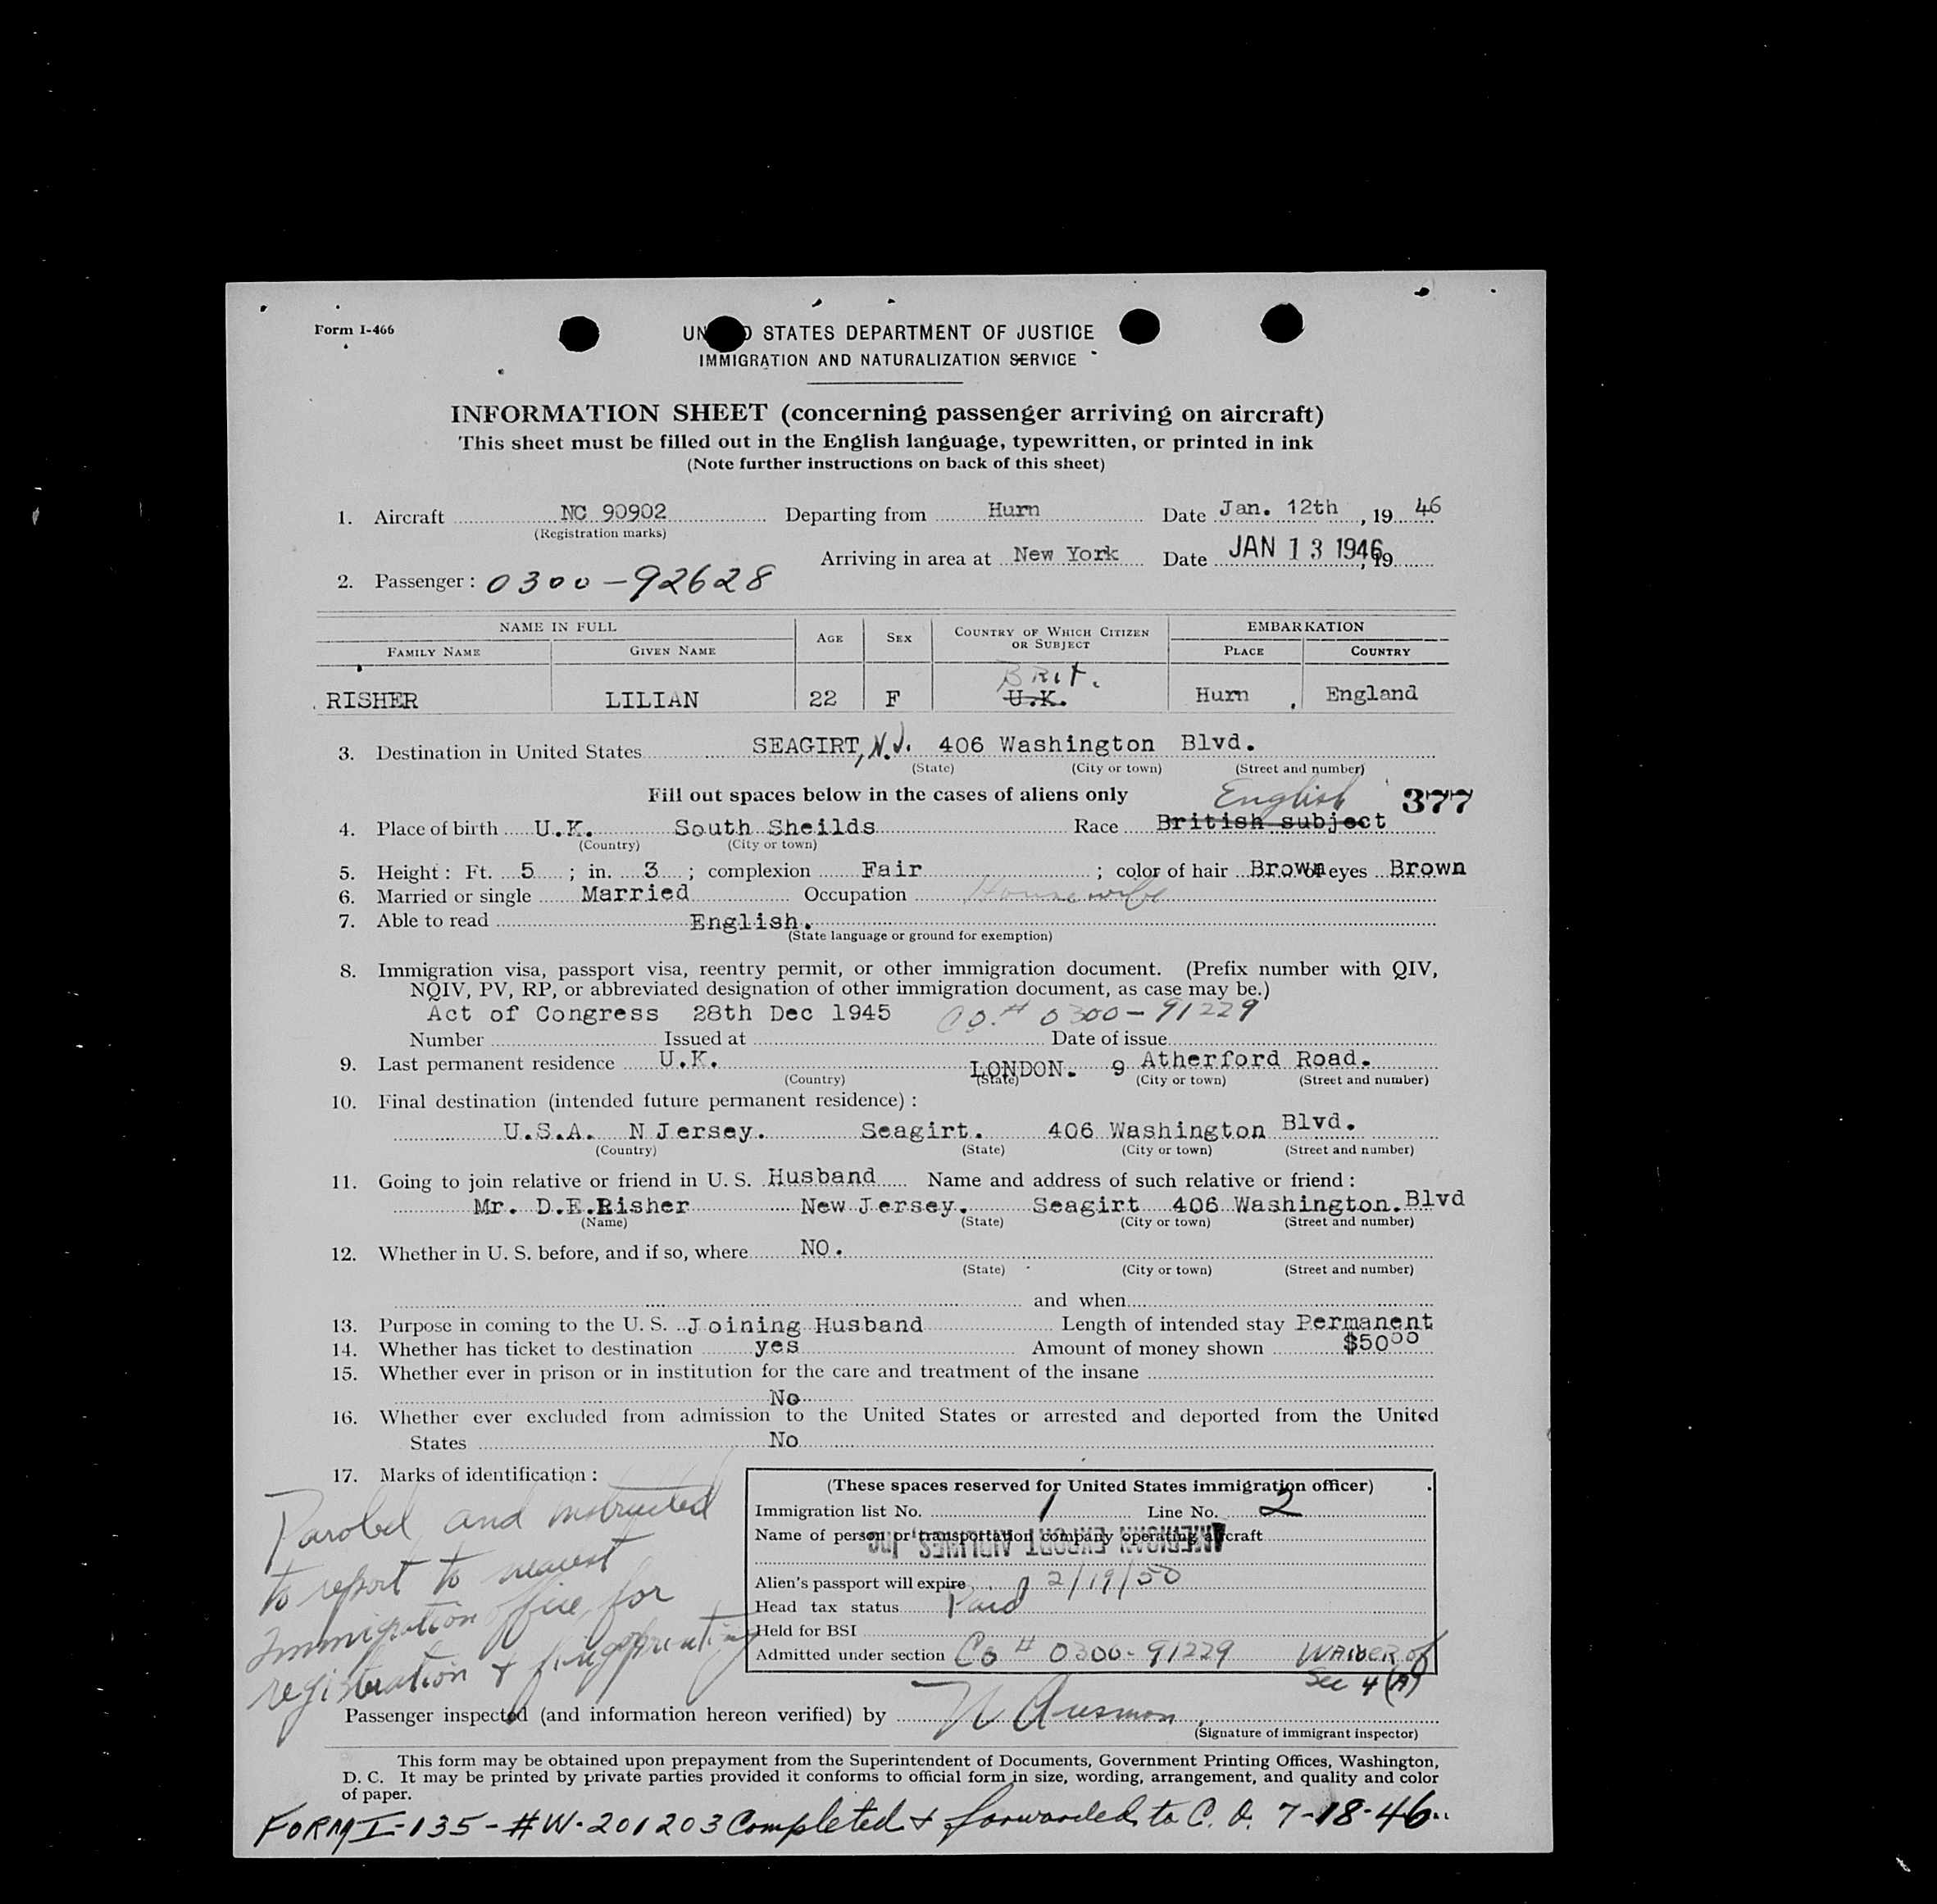 Form I-466
UNITED STATES DEPARTMENT OF JUSTICE
IMMIGRATION AND NATURALIZATION SERVICE
INFORMATION SHEET (concerning passenger arriving on aircraft)
This sheet must be filled out in the English language, typewritten, or printed in ink
(Note further instructions on back of this sheet)
1. Aircraft NC 90902 Departing from Hurn Date Jan. 12th, 19 46
(Registration marks)
Arriving in area at New York Date JAN 13 1946, 19
2. Passenger: 0300-92628
NAME IN FULL AGE SEX COUNTRY OF WHICH CITIZEN OR SUBJECT EMBARKATION
FAMILY NAME GIVEN NAME PLACE COUNTRY
Brit.
RISHER LILIAN 22 F U.K. Hurn, England
3. Destination in United States SEAGIRT, N.J. 406 Washington Blvd.
(State) (City or town) (Street and number)
Fill out spaces below in the cases of aliens only English 377
4. Place of birth U.K. South Sheilds Race British subject
(Country) (City or town)
5. Height: Ft. 5; in. 3; complexion Fair; color of hair Brown of eyes Brown
6. Married or single Married Occupation Housewife
7. Able to read English.
(State language or ground for exemption)
8. Immigration visa, passport visa, reentry permit, or other immigration document. (Prefix number with QIV,
NQIV, PV, RP, or abbreviated designation of other immigration document, as case may be.)
Act of Congress 28th Dec 1945 CO.# 0300-91229
Number Issued at Date of issue
9. Last permanent residence U.K. LONDON. 9 Atherford Road.
(Country) (State) (City or town) (Street and number)
10. Final destination (intended future permanent residence):
U.S.A. N Jersey. Seagirt. 406 Washington Blvd.
(Country) (State) (City or town) (Street and number)
11. Going to join relative or friend in U. S. Husband Name and address of such relative or friend:
Mr. D.E.Risher New Jersey. Seagirt 406 Washington. Blvd
(Name) (State) (City or town) (Street and number)
12. Whether in U. S. before, and if so, where NO.
(State) (City or town) (Street and number)
and when
13. Purpose in coming to the U. S. Joining Husband Length of intended stay Permanent
14. Whether has ticket to destination yes Amount of money shown $50 00
15. Whether ever in prison or in institution for the care and treatment of the insane
No
16. Whether ever excluded from admission to the United States or arrested and deported from the United
States No
17. Marks of identification:
Paroled and instructed
to report to nearest
Immigration office for
registration & fingerprinting
(These spaces reserved for United States immigration officer)
Immigration list No. 1 Line No. 2
Name of person or transportation company operating aircraft
AMERICAN EXPORT AIRLINES, Inc
Alien's passport will expire 2/19/50
Head tax status Paid
Held for BSI
Admitted under section Co # 0300-91229 Waiver of
Sec 4 (A)
Passenger inspected (and information hereon verified) by
(Signature of immigrant inspector)
This form may be obtained upon prepayment from the Superintendent of Documents, Government Printing Offices, Washington,
D. C. It may be printed by private parties provided it conforms to official form in size, wording, arrangement, and quality and color
of paper.
FORM I-135-#W-201203 Completed & forwarded to C. O. 7-18-46